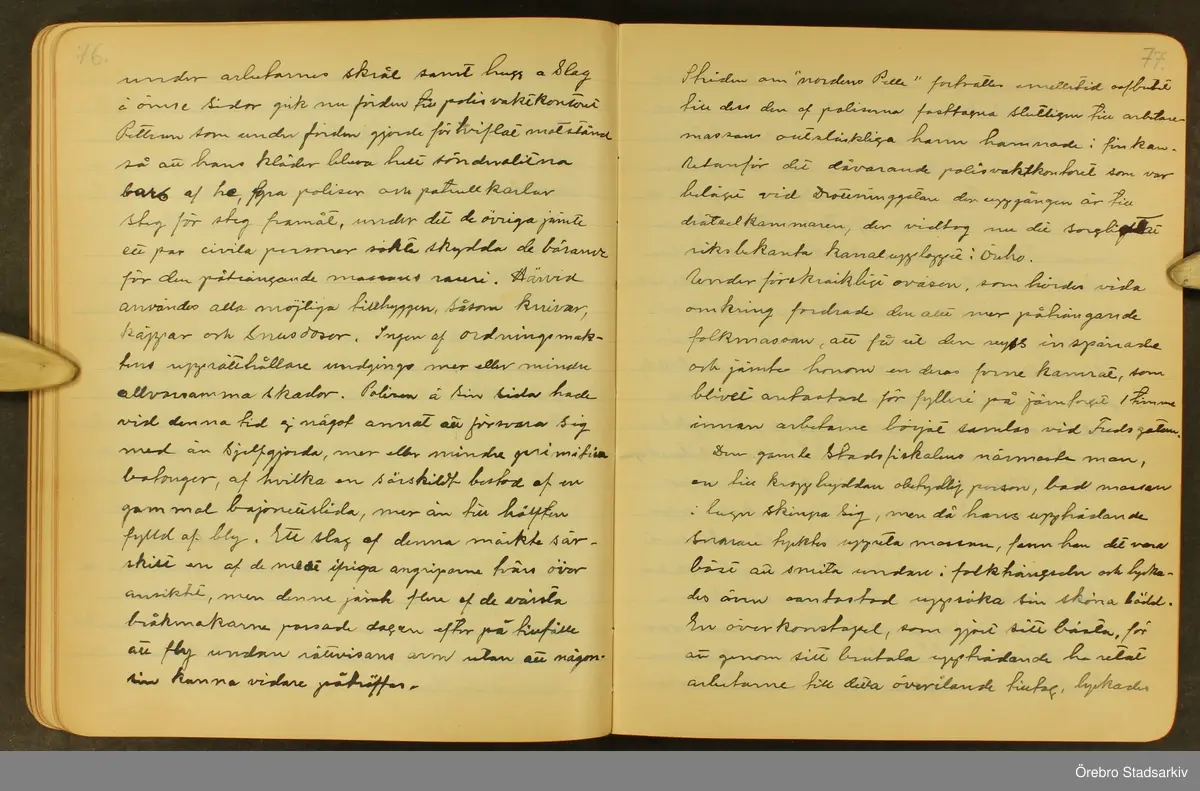 76.
under arbetarnes skrål samt hugg a Slag
å ömse Sidor gik nu färden till polisvaktkontoret
Petterson som under färden gjorde förtviflat motstånd
så att hans kläder bleva helt sönderslitna
bars af he, fyra poliser om patrullkarlar
steg för steg framåt, under det de övriga jämte
ett par civila personer sökte skydda de bärande
för den påträngande massans raseri. Härvid
användes alla möjliga tillhyggen, såsom knivar,
käppar och Snusdosor. Ingen af ordningsmak-
tens upprätthållare undgingo mer eller mindre
allvarsamma skador. Polisen å Sin Sida hade
vid denna tid ej något annat att försvara Sig
med än Sjelfgjorda, mer eller mindre primitiva
batonger, af hvilka en Särskildt bestod af en
gammal bajonettslida, mer än till hälften
fylld af bly. Ett slag af denna märkte sär-
skilt en af de mest ifriga angriparne tvärs över
ansiktet, men denne jämte flere af de värsta
bråkmakarne passade dagen efter på tillfälle
att fly undan rättvisans arm utan att någon-
sin kunna vidare påträffas.
77.
Striden om "nordens Pelle" fortsattes emellertid oafbrutet
till dess den af poliserna fasttagna slutligen till arbetare-
massans outsläckliga harm hamnade i finkan.
Utanför det dåvarande polisvaktkontoret som var
beläget vid Drottninggatan der uppgången är till
drätselkammaren, der vidtog nu det sorgligt
riksbekanta kravallupploppet i Örebro.
Under förskräckligt oväsen, som hördes vida
omkring fordrade den allt mer påträngande
folkmassan, att få ut den nyss inspärrade
och jämte honom en deras forne kamrat, som
blivit antastad för fylleri på järntorget 1 timme
innan arbetarne börjat samlas vid Fredsgatan.
Den gamle Stadsfiskalens närmaste man,
en till kroppshyddan obetydlig person, bad massan
i lugn skingra Sig, men då hans uppträdande
snarare tycktes uppreta massan, fann han det vara
bäst att smita undan i folkträngseln och lycka-
des även oantastad uppsöka sin sköna bädd.
En överkonstapel, som gjort sitt bästa, för
att genom sitt brutala uppträdande ha retat
arbetarne till detta överilande tilltag, lyckades
Örebro Stadsarkiv